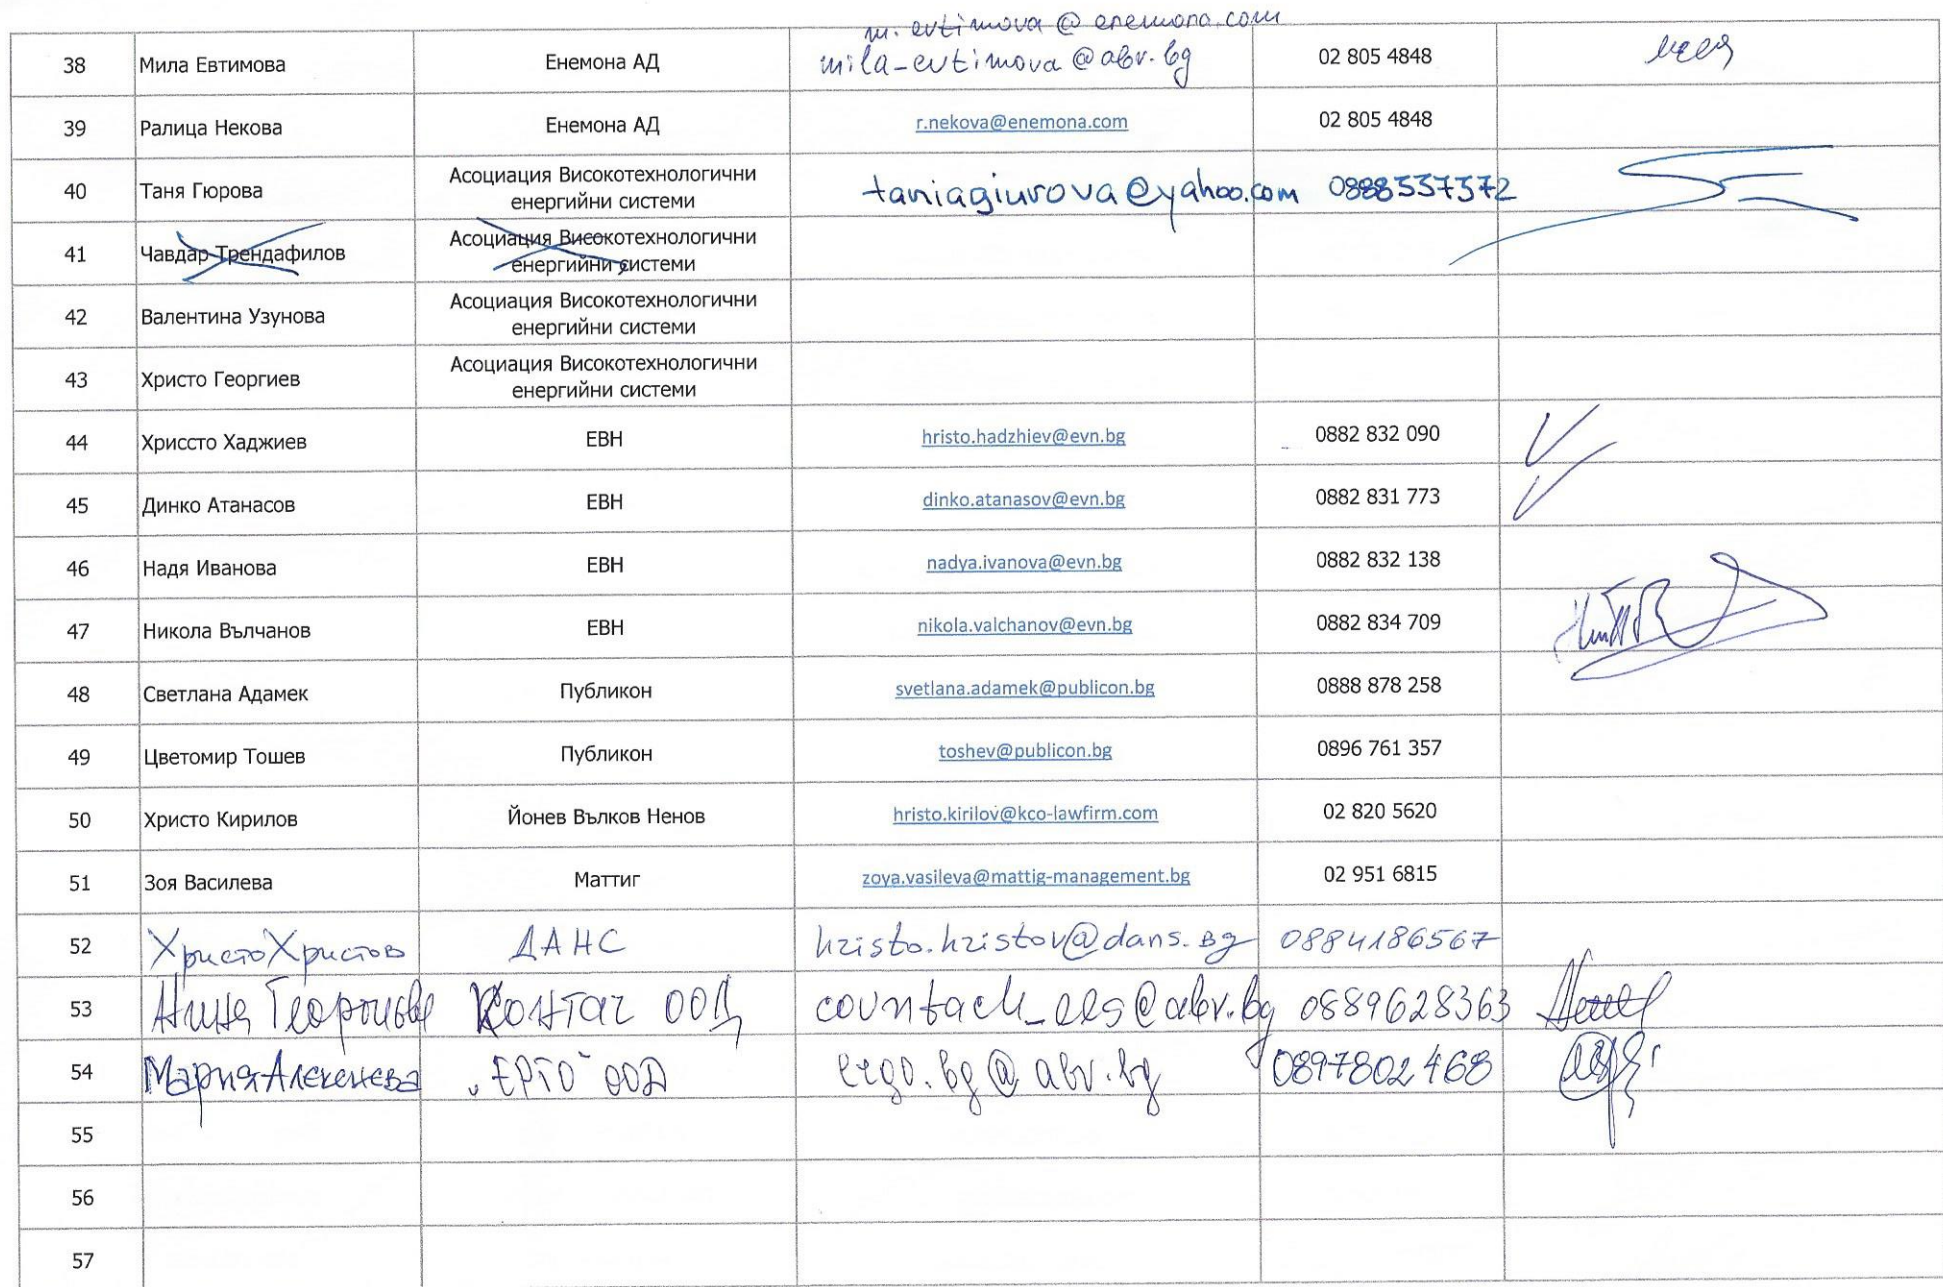 m.evtimova@enemona.com
38 Мила Евтимова Енемона АД mila-evtimova@abv.bg 02 805 4848
39 Ралица Некова Енемона АД r.nekova@enemona.com 02 805 4848
40 Таня Гюрова Асоциация Високотехнологични енергийни системи taniagiurova@yahoo.com 0888537572
41 Чавдар Трендафилов Асоциация Високотехнологични енергийни системи
42 Валентина Узунова Асоциация Високотехнологични енергийни системи
43 Христо Георгиев Асоциация Високотехнологични енергийни системи
44 Хриссто Хаджиев ЕВН hristo.hadzhiev@evn.bg 0882 832 090
45 Динко Атанасов ЕВН dinko.atanasov@evn.bg 0882 831 773
46 Надя Иванова ЕВН nadya.ivanova@evn.bg 0882 832 138
47 Никола Вълчанов ЕВН nikola.valchanov@evn.bg 0882 834 709
48 Светлана Адамек Публикон svetlana.adamek@publicon.bg 0888 878 258
49 Цветомир Тошев Публикон toshev@publicon.bg 0896 761 357
50 Христо Кирилов Йонев Вълков Ненов hristo.kirilov@kco-lawfirm.com 02 820 5620
51 Зоя Василева Маттиг zoya.vasileva@mattig-management.bg 02 951 6815
52 Христо Христов ДАНС hristo.hristov@dans.bg 0884186567
53 Нина Георгиева Контач ООД countach_ees@abv.bg 0889628363
54 Мария "ЕРГО" ООД ergo.bg@abv.bg 0897802468
55
56
57